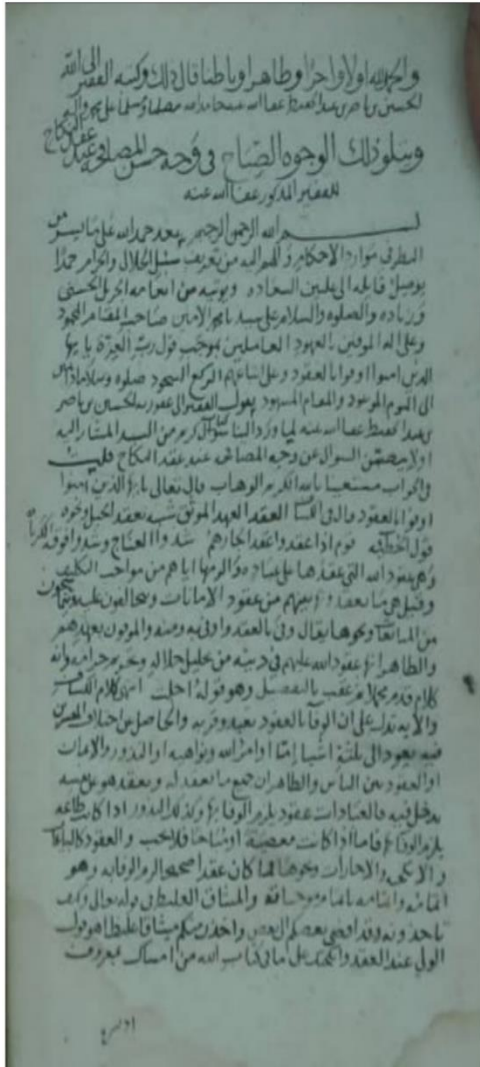 والحمد لله اولا واخرا وظاهرا وباطنا قال ذلك وكتبه الفقير الى الله
الحسين بن ناصر بن عبد الحفيظ عفا الله عنه حامدا لله مصليا ومسلما على محمد واله
ويتلو ذلك الوجوه الصباح في وجه حسن المصافحة عند عقد النكاح
للفقير المذكور عفا الله عنه
بسم الله الرحمن الرحيم بعد حمد الله على ما يسر من
النظر في موارد الاحكام والهم اليه من تعريف سبل الحلال والحرام حمدا
يوصل قائله الى السعاده ويوتيه من انعامه الحسنى
وزياده والصلوه والسلام على سيدنا محمد الامين صاحب المقام المحمود
وعلى اله الموفين بالعهود العاملين بموجب قول رب العزة يا ايها
الذين امنوا اوفوا بالعقود وعلى اتباعهم الركع السجود صلوه وسلاما
الى اليوم الموعود والمقام المشهود يقول الفقير الى عفو ربه الحسين بن ناصر
بن عبد الحفيظ عفا الله عنه لما ورد الينا سوال كريم من السيد المشار اليه
اولا يتضمن السوال عن وجه المصافحه عند عقد النكاح قلت
في الجواب مستعينا بالله الكريم الوهاب قال تعالى يا ايها الذين امنوا
اوفوا بالعقود قال في الكشاف العقد العهد الموثق شبه بعقد الحبل ونحوه
قول الحطيئه قوم اذا عقدوا عقدا لجارهم شدوا العناج وشدوا فوقه الكربا
وهي عقود الله التي عقدها على عباده والزمها اياهم من مواجب التكليف
وقيل هي ما يعقدون بينهم من عقود الامانات ويتحالفون عليه ويتماسحون
من المبايعات ونحوها يقال وفى بالعهد واوفى به ومنه والموفون بعهدهم
والظاهر انها عقود الله عليهم في دينه من تحليل حلاله وتحريم حرامه وانه
كلام قدم مجملا ثم عقب بالتفصيل وهو قوله احلت انتهى كلام الكشاف
والايه تدل على ان الوفا بالعقود والحاصل من اختلاف المفسرين
فيه يعود الى ثلثة اشيا اما اوامر الله ونواهيه او النذور والايمان
او العقود بين الناس والظاهر ان جميع ما يعقد له ويعقد هو على نفسه
يدخل فيه فالعبادات عقود يلزم الوفا بها وكذلك النذور اذا كانت طاعه
يلزم الوفا بها فاما اذا كانت معصية او مباحا فلا يجب والعقود كالبياعات
والانكحه والاجارات ونحوها فما كان عقدا صحيحا لزم الوفا به وهو
اتمامه والقيام به والميثاق الغليظ في قوله تعالى وكيف
تاخذونه وقد افضى بعضكم الى بعض واخذن منكم ميثاقا غليظا هو قول
الولي عند العقد وانكحتك على ما في كتاب الله من امساك بمعروف
او تسريح